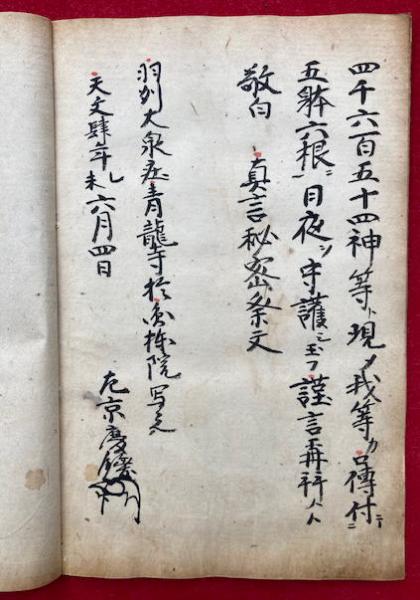 四千六百五十四神等ト現メ我等カ傳付ニテ
五躰六根ニ日夜ソ守護シ玉フ謹言再拜人人
敬白 真言秘密祭文
羽州大泉庄青龍寺於院写之
天文肆年乙未六月四日
左京慶